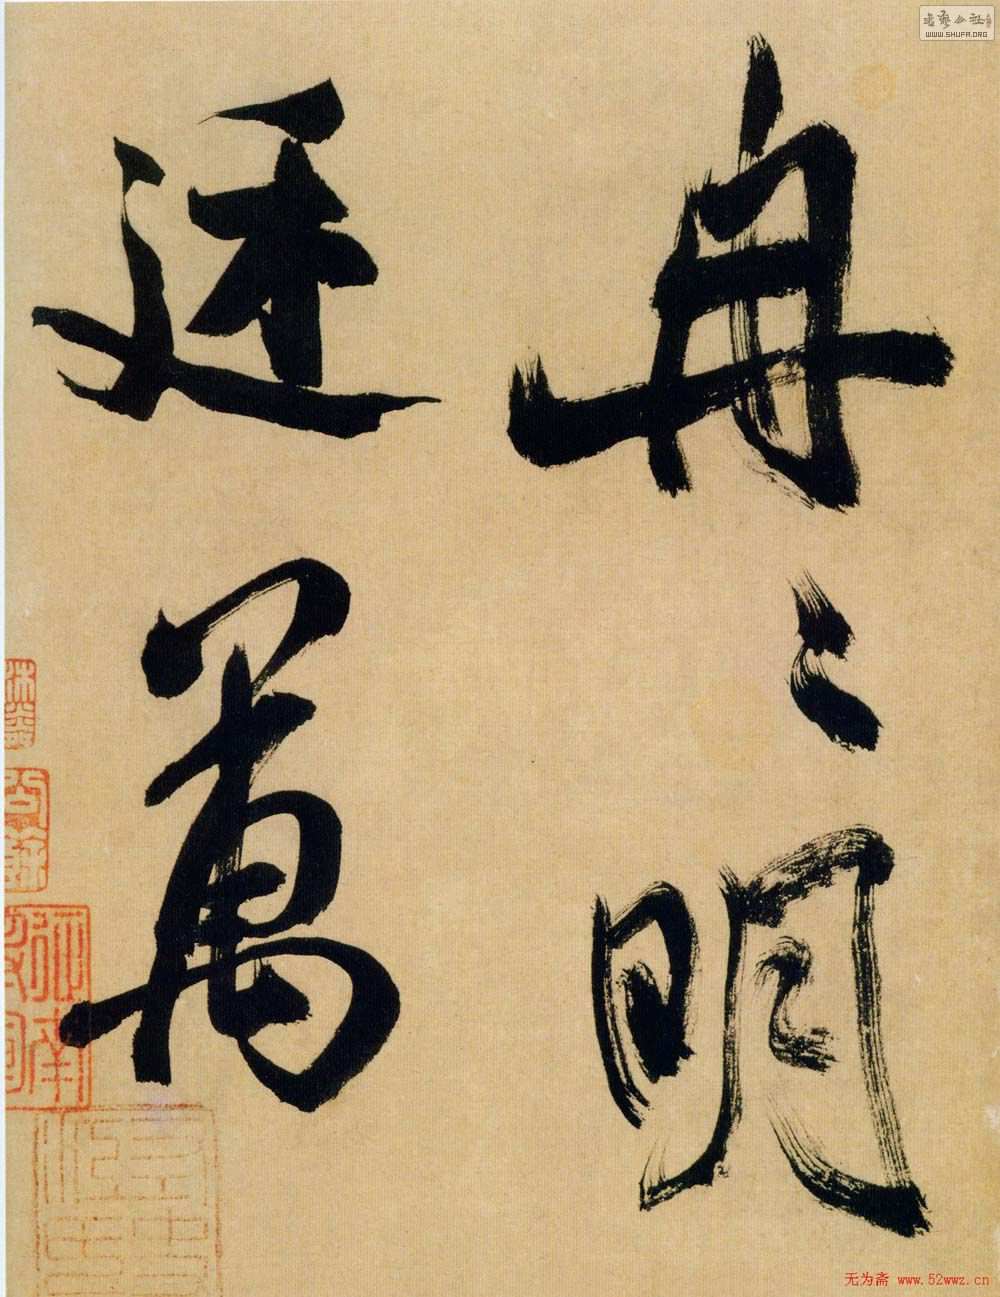 冉〻明
廷萬
书艺公社
WWW.SHUFA.ORG
无为斋 www.52wwz.cn